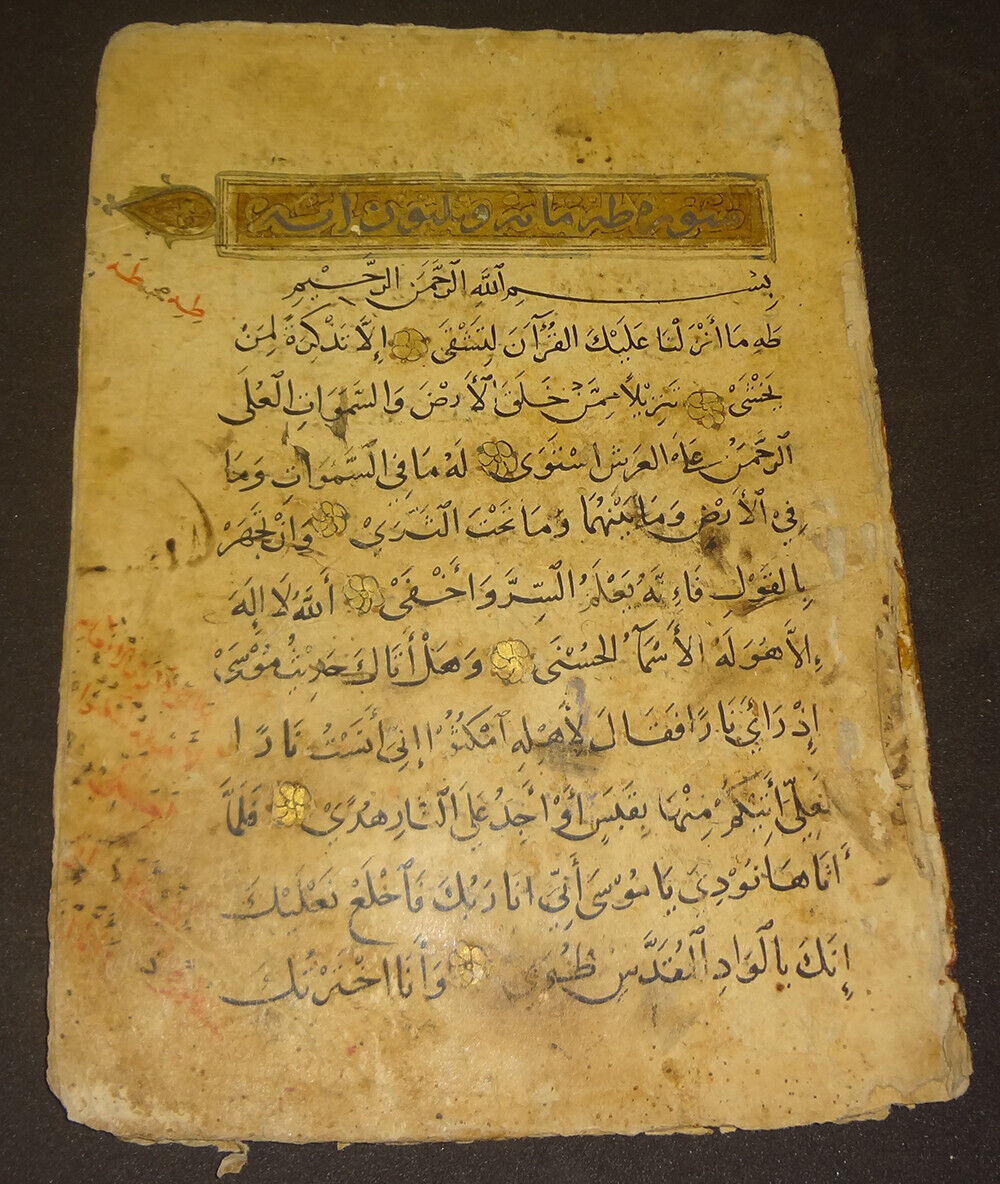 سورة طه مائة وثلثون اية
طه طه
بِسْمِ ٱللَّهِ ٱلرَّحْمَنِ الرَّحِيمِ
طه مَا أَنْزَلْنَا عَلَيْكَ القُرْآنَ لِتَشْقَى إِلَّا تَذْكِرَةً لِمَنْ
يَخْشَىْ تَنْزِيْلاً مِمَّنْ خَلَقَ ٱلْأَرْضَ وَالسَّمَوَاتِ الْعُلَى
ٱلرَّحْمَنُ عَلَى العَرْشِ اسْتَوَى لَهُ مَا فِي السَّمَوَاتِ وَمَا
فِيْ ٱلأَرْضِ وَمَا بَيْنَهُمَا وَمَا تَحْتَ الثَّرَىْ وَإِنْ تَجْهَرْ
بِالقَوْلِ فَإِنَّهُ يَعْلَمُ السِّرَّ وَأَخْفَىْ أَللَّهُ لَا إِلَهَ
إِلَّا هُوَ لَهُ الأَسْمَآءُ الحُسْنَى وَهَلْ أَتَاكَ حَدِيثُ مُوْسَىْ
إِذْ رَأَىْ نَارًا فَقَالَ لِأَهْلِهِ ٱمْكُثُوْا إِنِّي أَنَسْتُ نَارًا
لَعَلِّيْ أَتِيْكُمْ مِنْهَا بِقَبَسٍ أَوْ أَجِدُ عَلَى النَّارِ هُدًىْ فَلَمَّا
أَتَاهَا نُوْدِيَ يَا مُوْسَى أَنِّيْ أَنَا رَبُّكَ فَٱخْلَعْ نَعْلَيْكَ
إِنَّكَ بِالْوَادِ المُقَدَّسِ طُوَى وَأَنَا اخْتَرْتُكَ